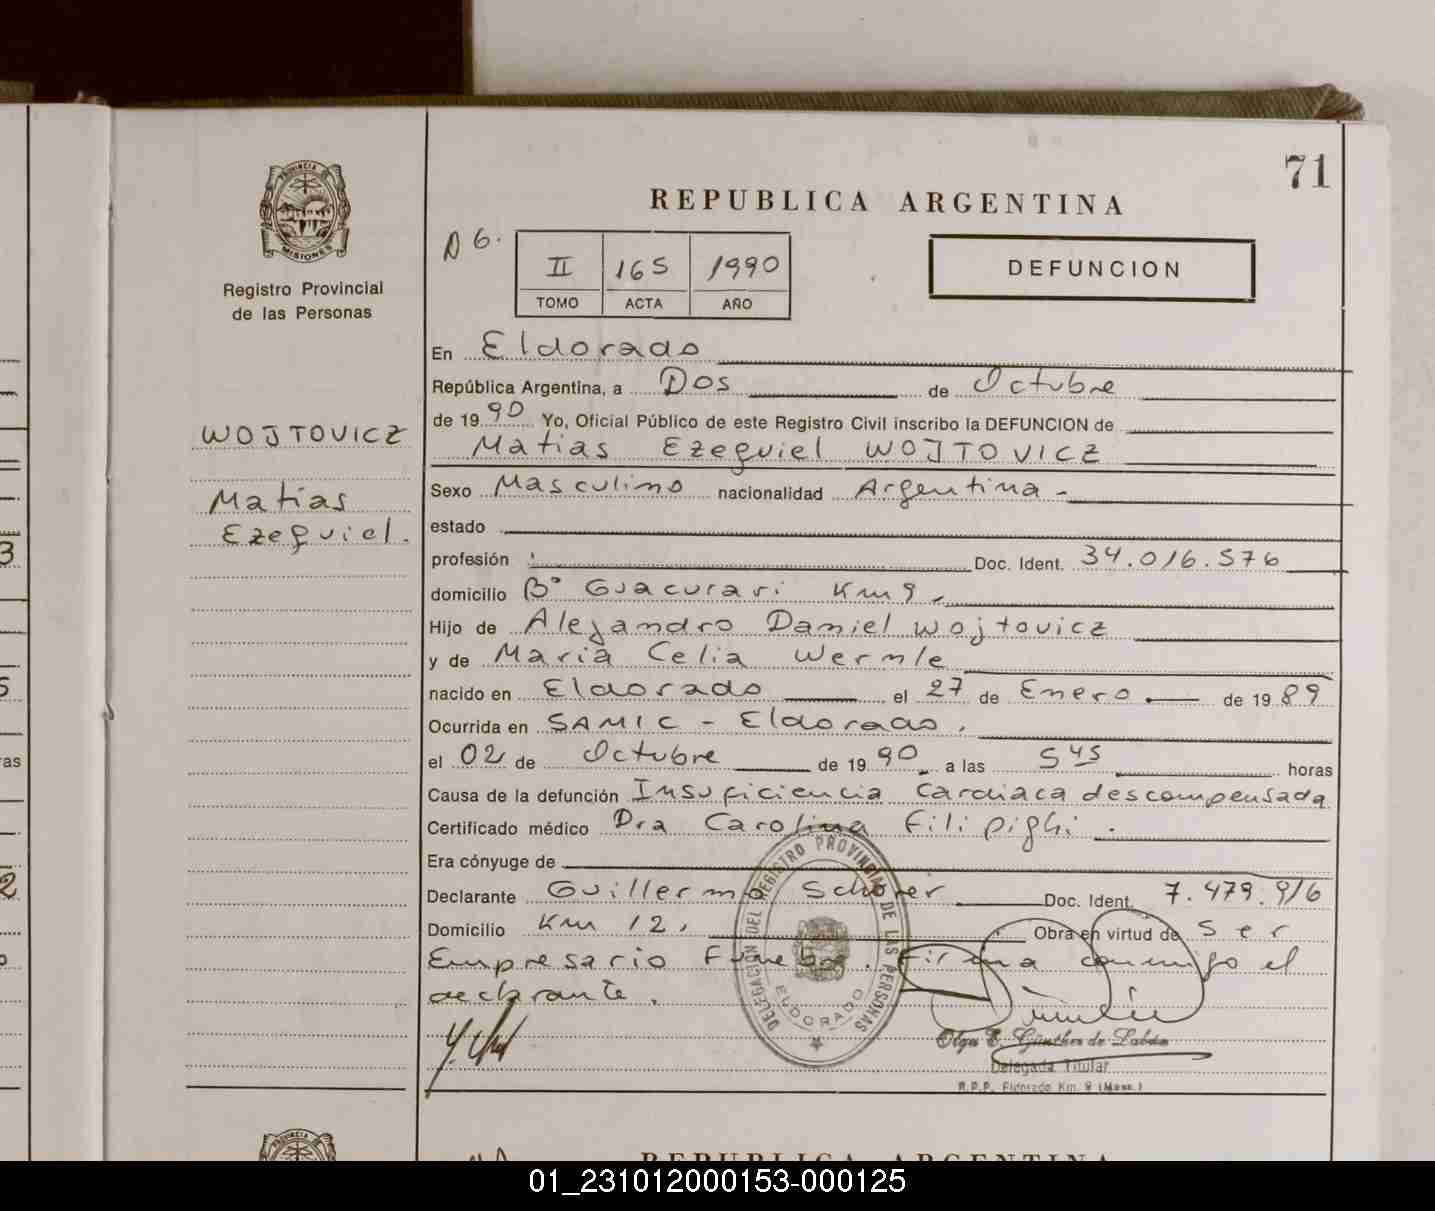 71
REPUBLICA ARGENTINA
PROVINCIA DE MISIONES
Registro Provincial
de las Personas
II 165 1990
TOMO ACTA AÑO
DEFUNCION
WOJTOVICZ
Matias
Ezequiel.
En Eldorado
República Argentina, a Dos de Octubre
de 1990 Yo, Oficial Público de este Registro Civil inscribo la DEFUNCION de
Matias Ezequiel WOJTOVICZ
Sexo Masculino nacionalidad Argentina -
estado
profesión Doc. Ident. 34.016.576
domicilio B° Guacurari Km 9.
Hijo de Alejandro Daniel Wojtovicz
y de Maria Celia Wermle
nacido en Eldorado el 27 de Enero de 1989
Ocurrida en SAMIC - Eldorado.
el 02 de Octubre de 1990 a las 5 45 horas
Causa de la defunción Insuficiencia Cardiaca descompensada
Certificado médico Dra Carolina Filipighi.
Era cónyuge de
Declarante Guillermo Schorer Doc. Ident. 7.479.916
Domicilio Km 12. Obra en virtud de Ser
Empresario Funebre. Firma conmigo el
declarante.
DELEGACION DEL REGISTRO PROVINCIAL DE LAS PERSONAS
ELDORADO
Olga E. Günther de Labán
Delegada Titular
R.P.P. Eldorado Km. 9 (Mnes.)
REPUBLICA ARGENTINA
01_231012000153-000125